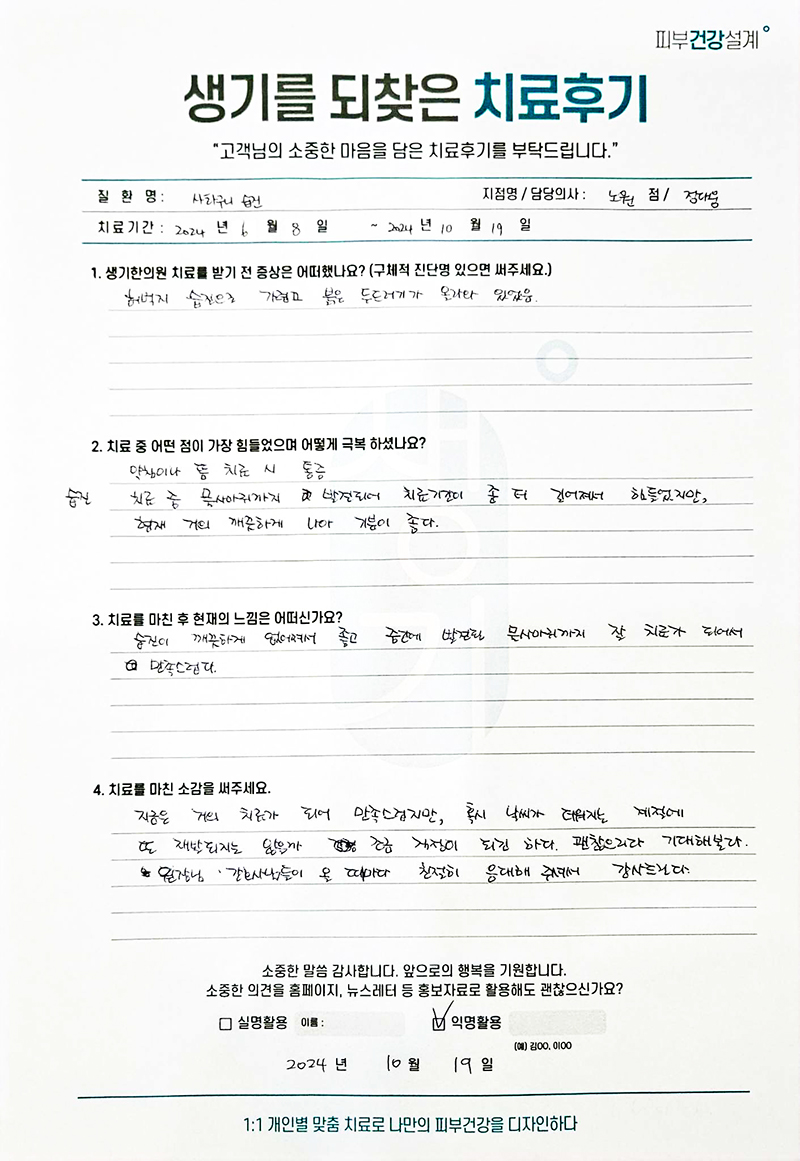 피부건강설계
생기를 되찾은 치료후기
"고객님의 소중한 마음을 담은 치료후기를 부탁드립니다."
질 환 명 : 사타구니 습진 지점명 / 담당의사 : 노원 점 / 정대웅
치료기간 : 2024 년 6 월 8 일 ~ 2024 년 10 월 19 일
1. 생기한의원 치료를 받기 전 증상은 어떠했나요? (구체적 진단명 있으면 써주세요.)
허벅지 습진으로 가렵고 붉은 두드러기가 올라와 있었음.
2. 치료 중 어떤 점이 가장 힘들었으며 어떻게 극복 하셨나요?
약침이나 뜸 치료 시 통증
습진 치료 중 묘사마귀까지 발견되어 치료기간이 좀 더 길어져서 힘들었지만,
현재 거의 깨끗하게 나아 기분이 좋다.
3. 치료를 마친 후 현재의 느낌은 어떠신가요?
습진이 깨끗하게 없어져서 좋고 중간에 발견된 묘사마귀까지 잘 치료가 되어서
만족스럽다.
4. 치료를 마친 소감을 써주세요.
지금은 거의 치료가 되어 만족스럽지만, 혹시 날씨가 더워지는 계절에
또 재발되지는 않을까 조금 걱정이 되긴 하다. 괜찮으리라 기대해본다.
원장님, 간호사님들이 올 때마다 친절히 응대해 주셔서 감사드린다.
소중한 말씀 감사합니다. 앞으로의 행복을 기원합니다.
소중한 의견을 홈페이지, 뉴스레터 등 홍보자료로 활용해도 괜찮으신가요?
실명활용 이름 : 익명활용
(예) 김OO, 이OO
2024 년 10 월 19 일
1:1 개인별 맞춤 치료로 나만의 피부건강을 디자인하다